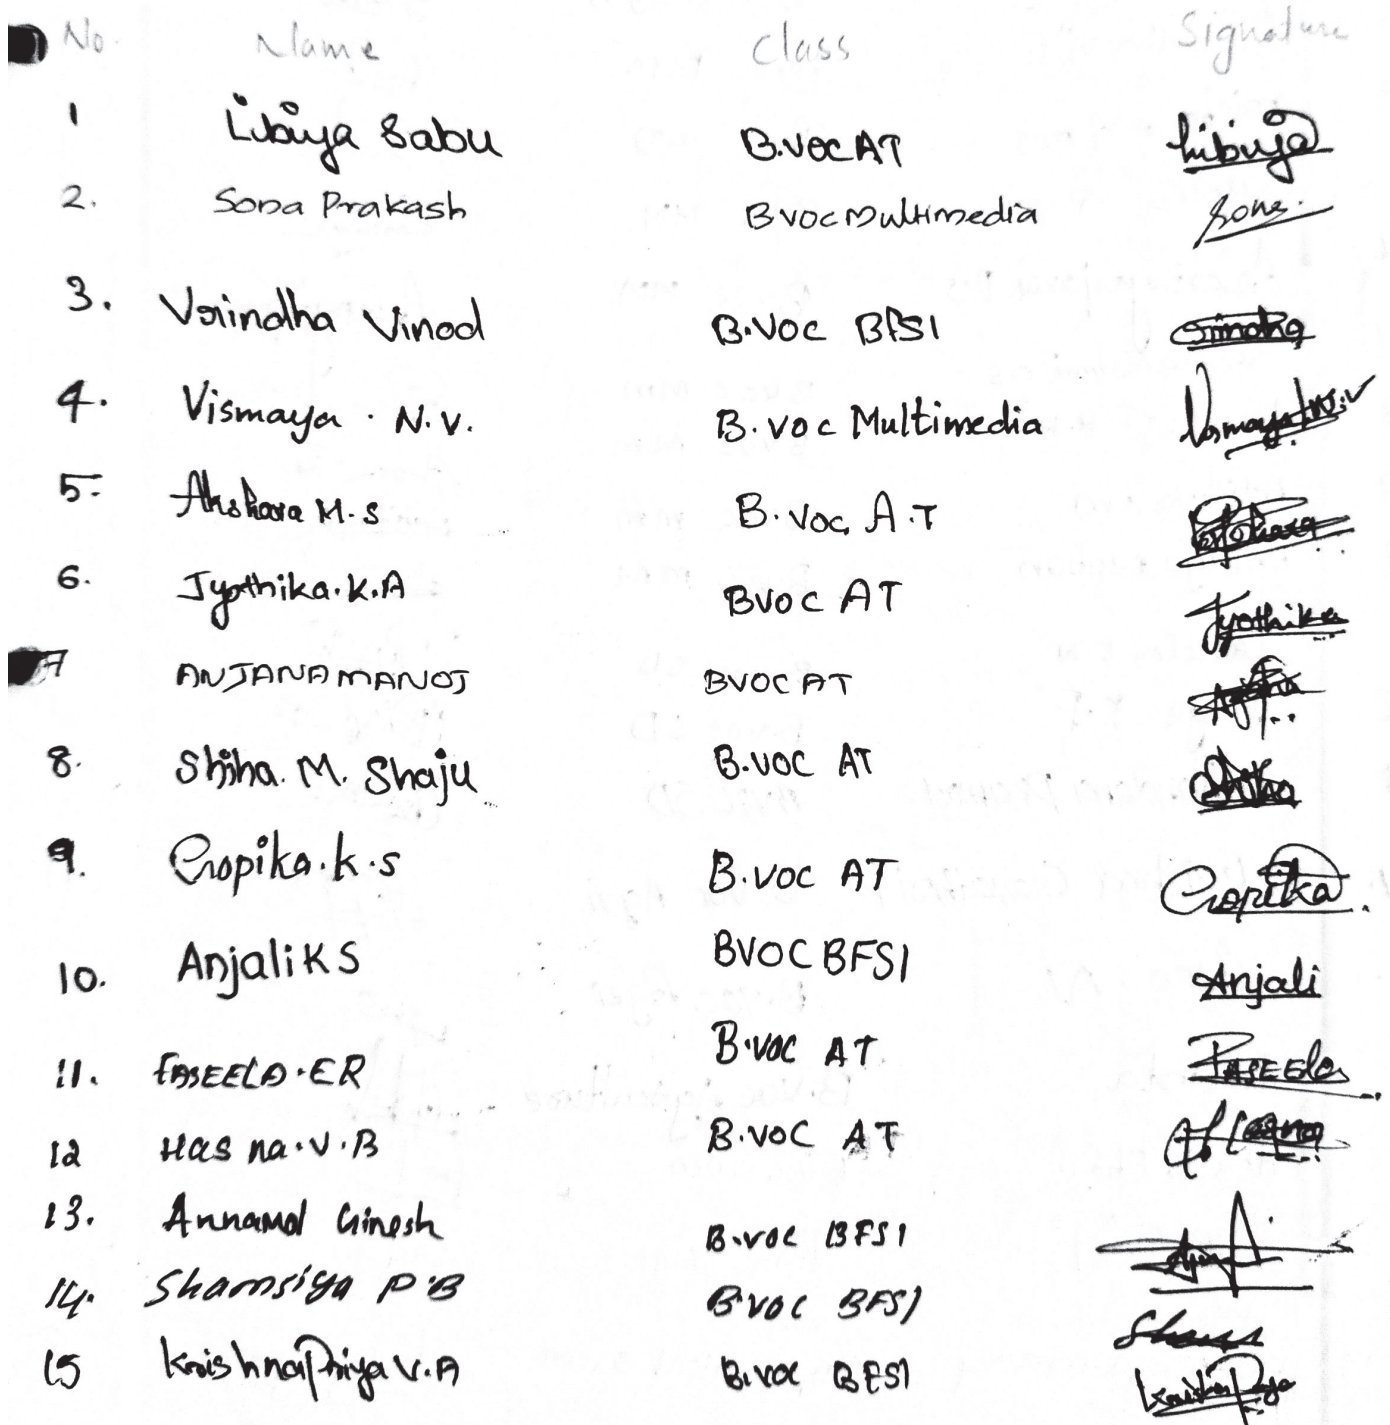 No. Name Class Signature
1 Libiya Sabu B.VOC AT Libiya
2. Sona Prakash B VOC Multimedia Sona.
3. Vrindha Vinod B.VOC BFSI
4. Vismaya . N.V. B.voc Multimedia Vismaya N.V
5. Akshara M.S B.Voc A.T
6. Jyothika.K.A BVOC AT Jyothika
7 ANJANA MANOJ BVOC AT
8. Shiha. M. Shaju B.VOC AT Shiha
9. Gopika.k.s B.VOC AT Gopika
10. Anjali KS BVOC BFSI Anjali
11. FASEELA.ER B.VOC AT FASEEla
12 Hasna.V.B B.VOC AT Hasna
13. Annamol Ginesh B.voc BFSI
14. Shamsiya P.B B.voc BFSI
15 KrishnaPriya V.A B.voc BFSI KrishnaPriya